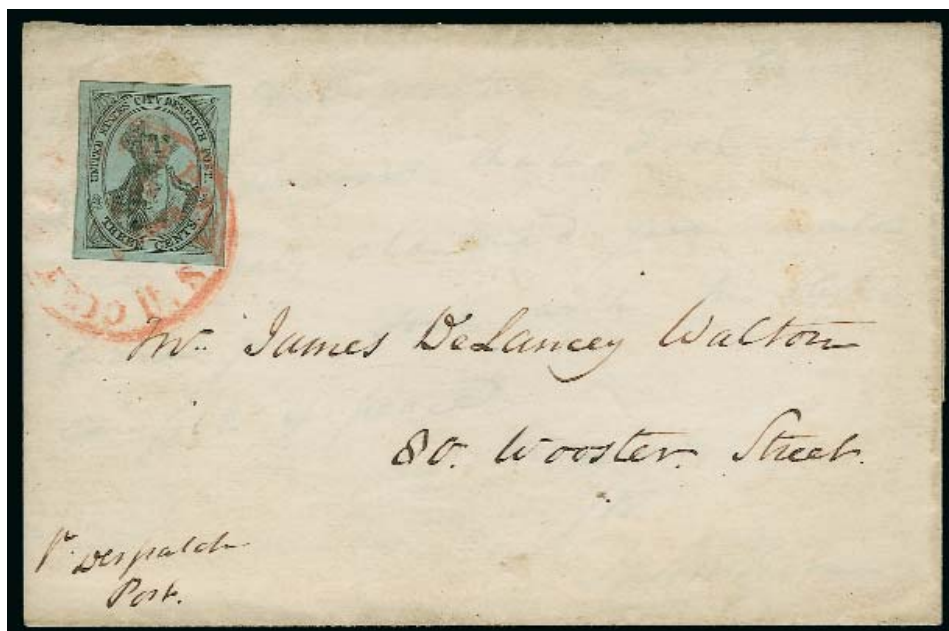 UNITED STATES CITY DESPATCH POST.
THREE CENTS.
Mr. James DeLancey Walton
80. Wooster Street.
pr. Despatch
Post.